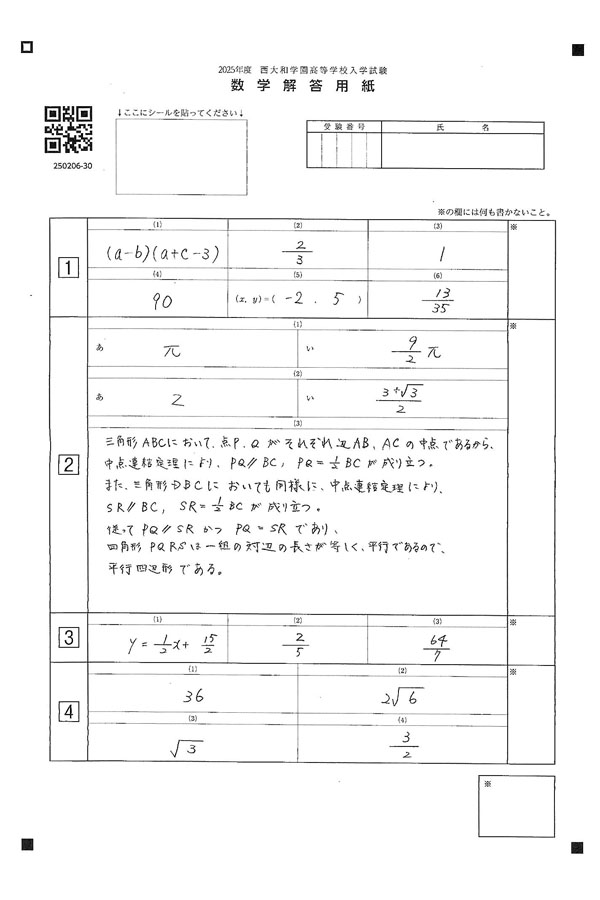 2025年度 西大和学園高等学校入学試験
数学解答用紙
↓ここにシールを貼ってください↓
受験番号 氏 名
250206-30
※の欄には何も書かないこと。
1
(1) (2) (3) ※
(a-b)(a+c-3) 2/3 1
(4) (5) (6)
90 (x, y)=( -2 . 5 ) 13/35
2
(1) ※
あ π い 9/2 π
(2)
あ 2 い 3+√3/2
(3)
三角形ABCにおいて、点P、Qがそれぞれ辺AB、ACの中点であるから、
中点連結定理により、PQ∥BC, PQ=1/2BCが成り立つ。
また、三角形DBCにおいても同様に、中点連結定理により、
SR∥BC, SR=1/2BCが成り立つ。
従ってPQ∥SRかつPQ=SRであり、
四角形PQRSは一組の対辺の長さが等しく、平行であるので、
平行四辺形である。
3
(1) (2) (3) ※
y=1/2x+15/2 2/5 64/7
4
(1) (2) ※
36 2√6
(3) (4)
√3 3/2
※